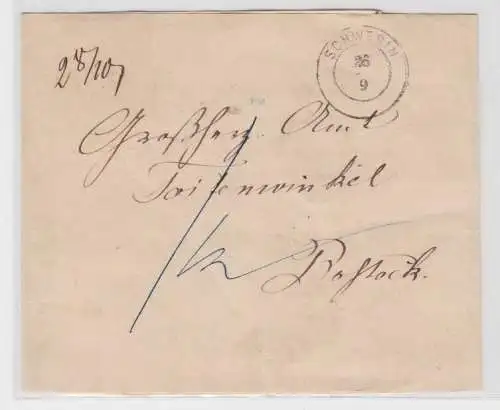 28/10
SCHWERIN
26
9
Großherz. Amt
Toitenwinkel
Rostock.